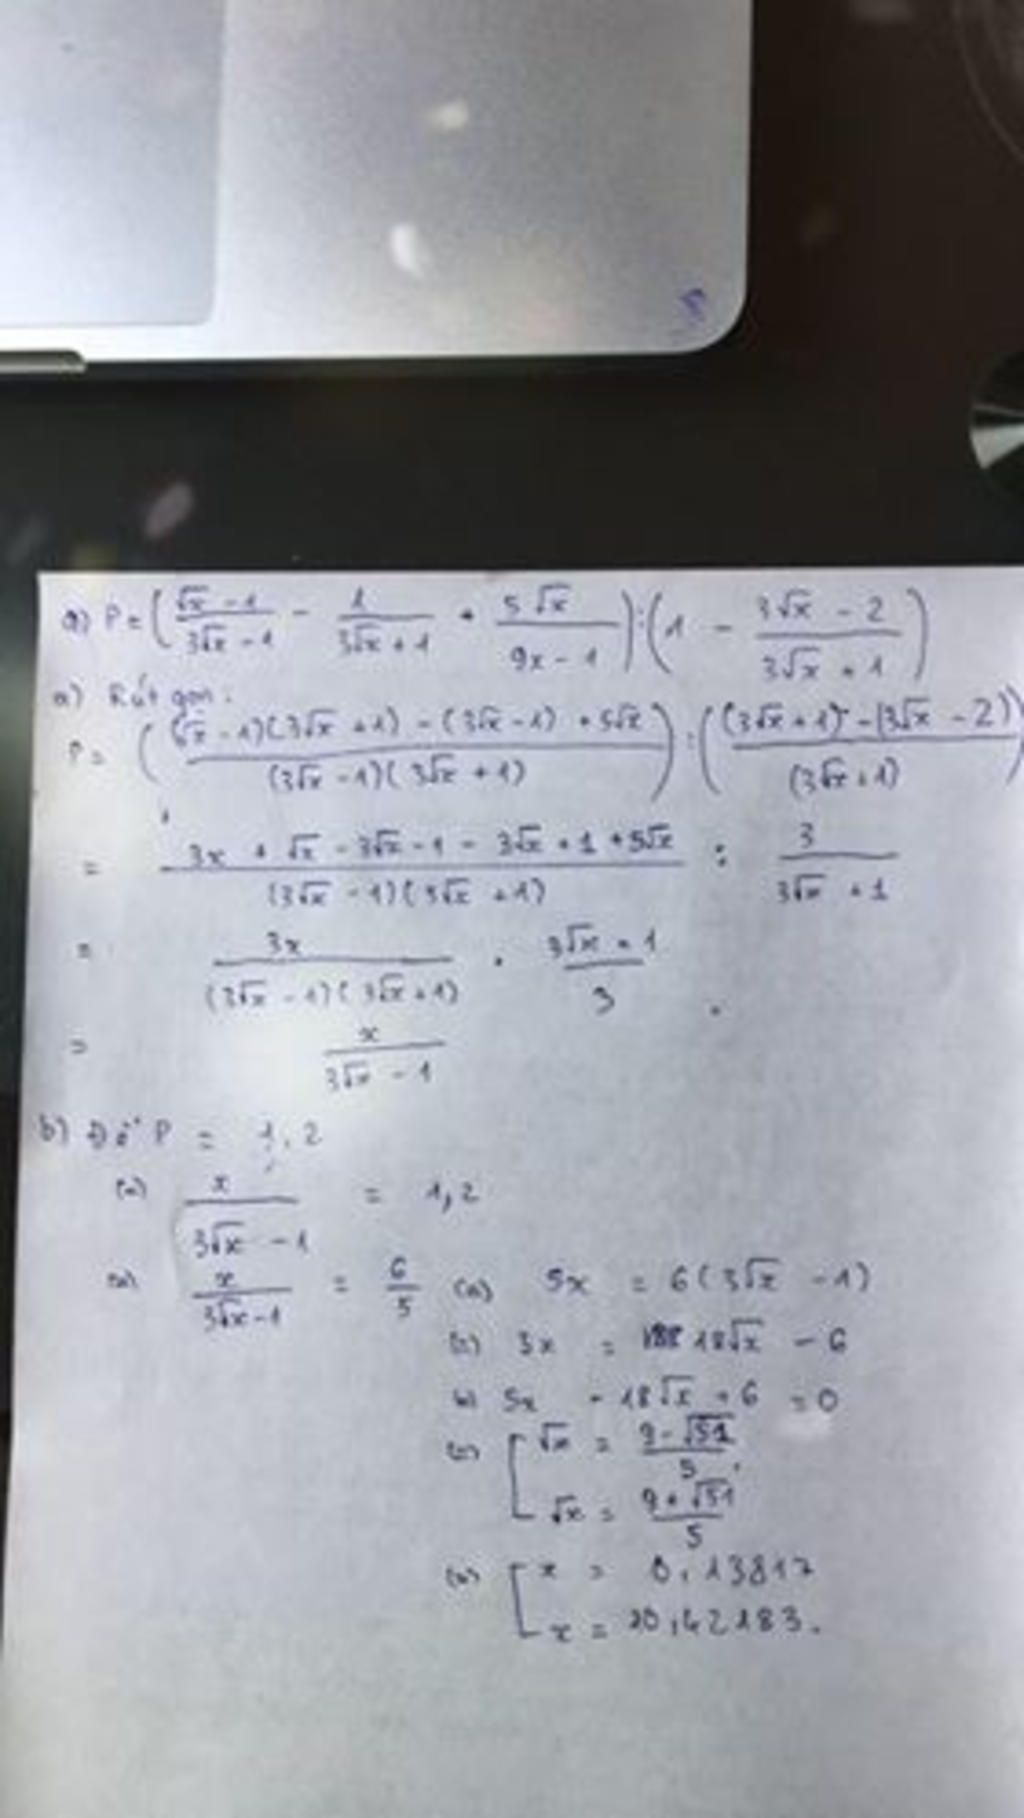 a) P = ( (√x - 1)/(3√x - 1) - 1/(3√x + 1) + 5√x/(9x - 1) ) : ( 1 - (3√x - 2)/(3√x + 1) )
a) Rút gọn :
P = ( ((√x - 1)(3√x + 1) - (3√x - 1) + 5√x)/((3√x - 1)(3√x + 1)) ) : ( ((3√x + 1) - (3√x - 2))/(3√x + 1) )
= (3x + √x - 3√x - 1 - 3√x + 1 + 5√x)/((3√x - 1)(3√x + 1)) : 3/(3√x + 1)
= 3x/((3√x - 1)(3√x + 1)) . (3√x + 1)/3
= x/(3√x - 1)
b) Để P = 1,2
(=) x/(3√x - 1) = 1,2
(=) x/(3√x - 1) = 6/5 (=) 5x = 6(3√x - 1)
(=) 5x = 18√x - 6
(=) 5x - 18√x + 6 = 0
(=) [ √x = (9 - √51)/5
√x = (9 + √51)/5
(=) [ x = 0,13817
x = 10,42183.